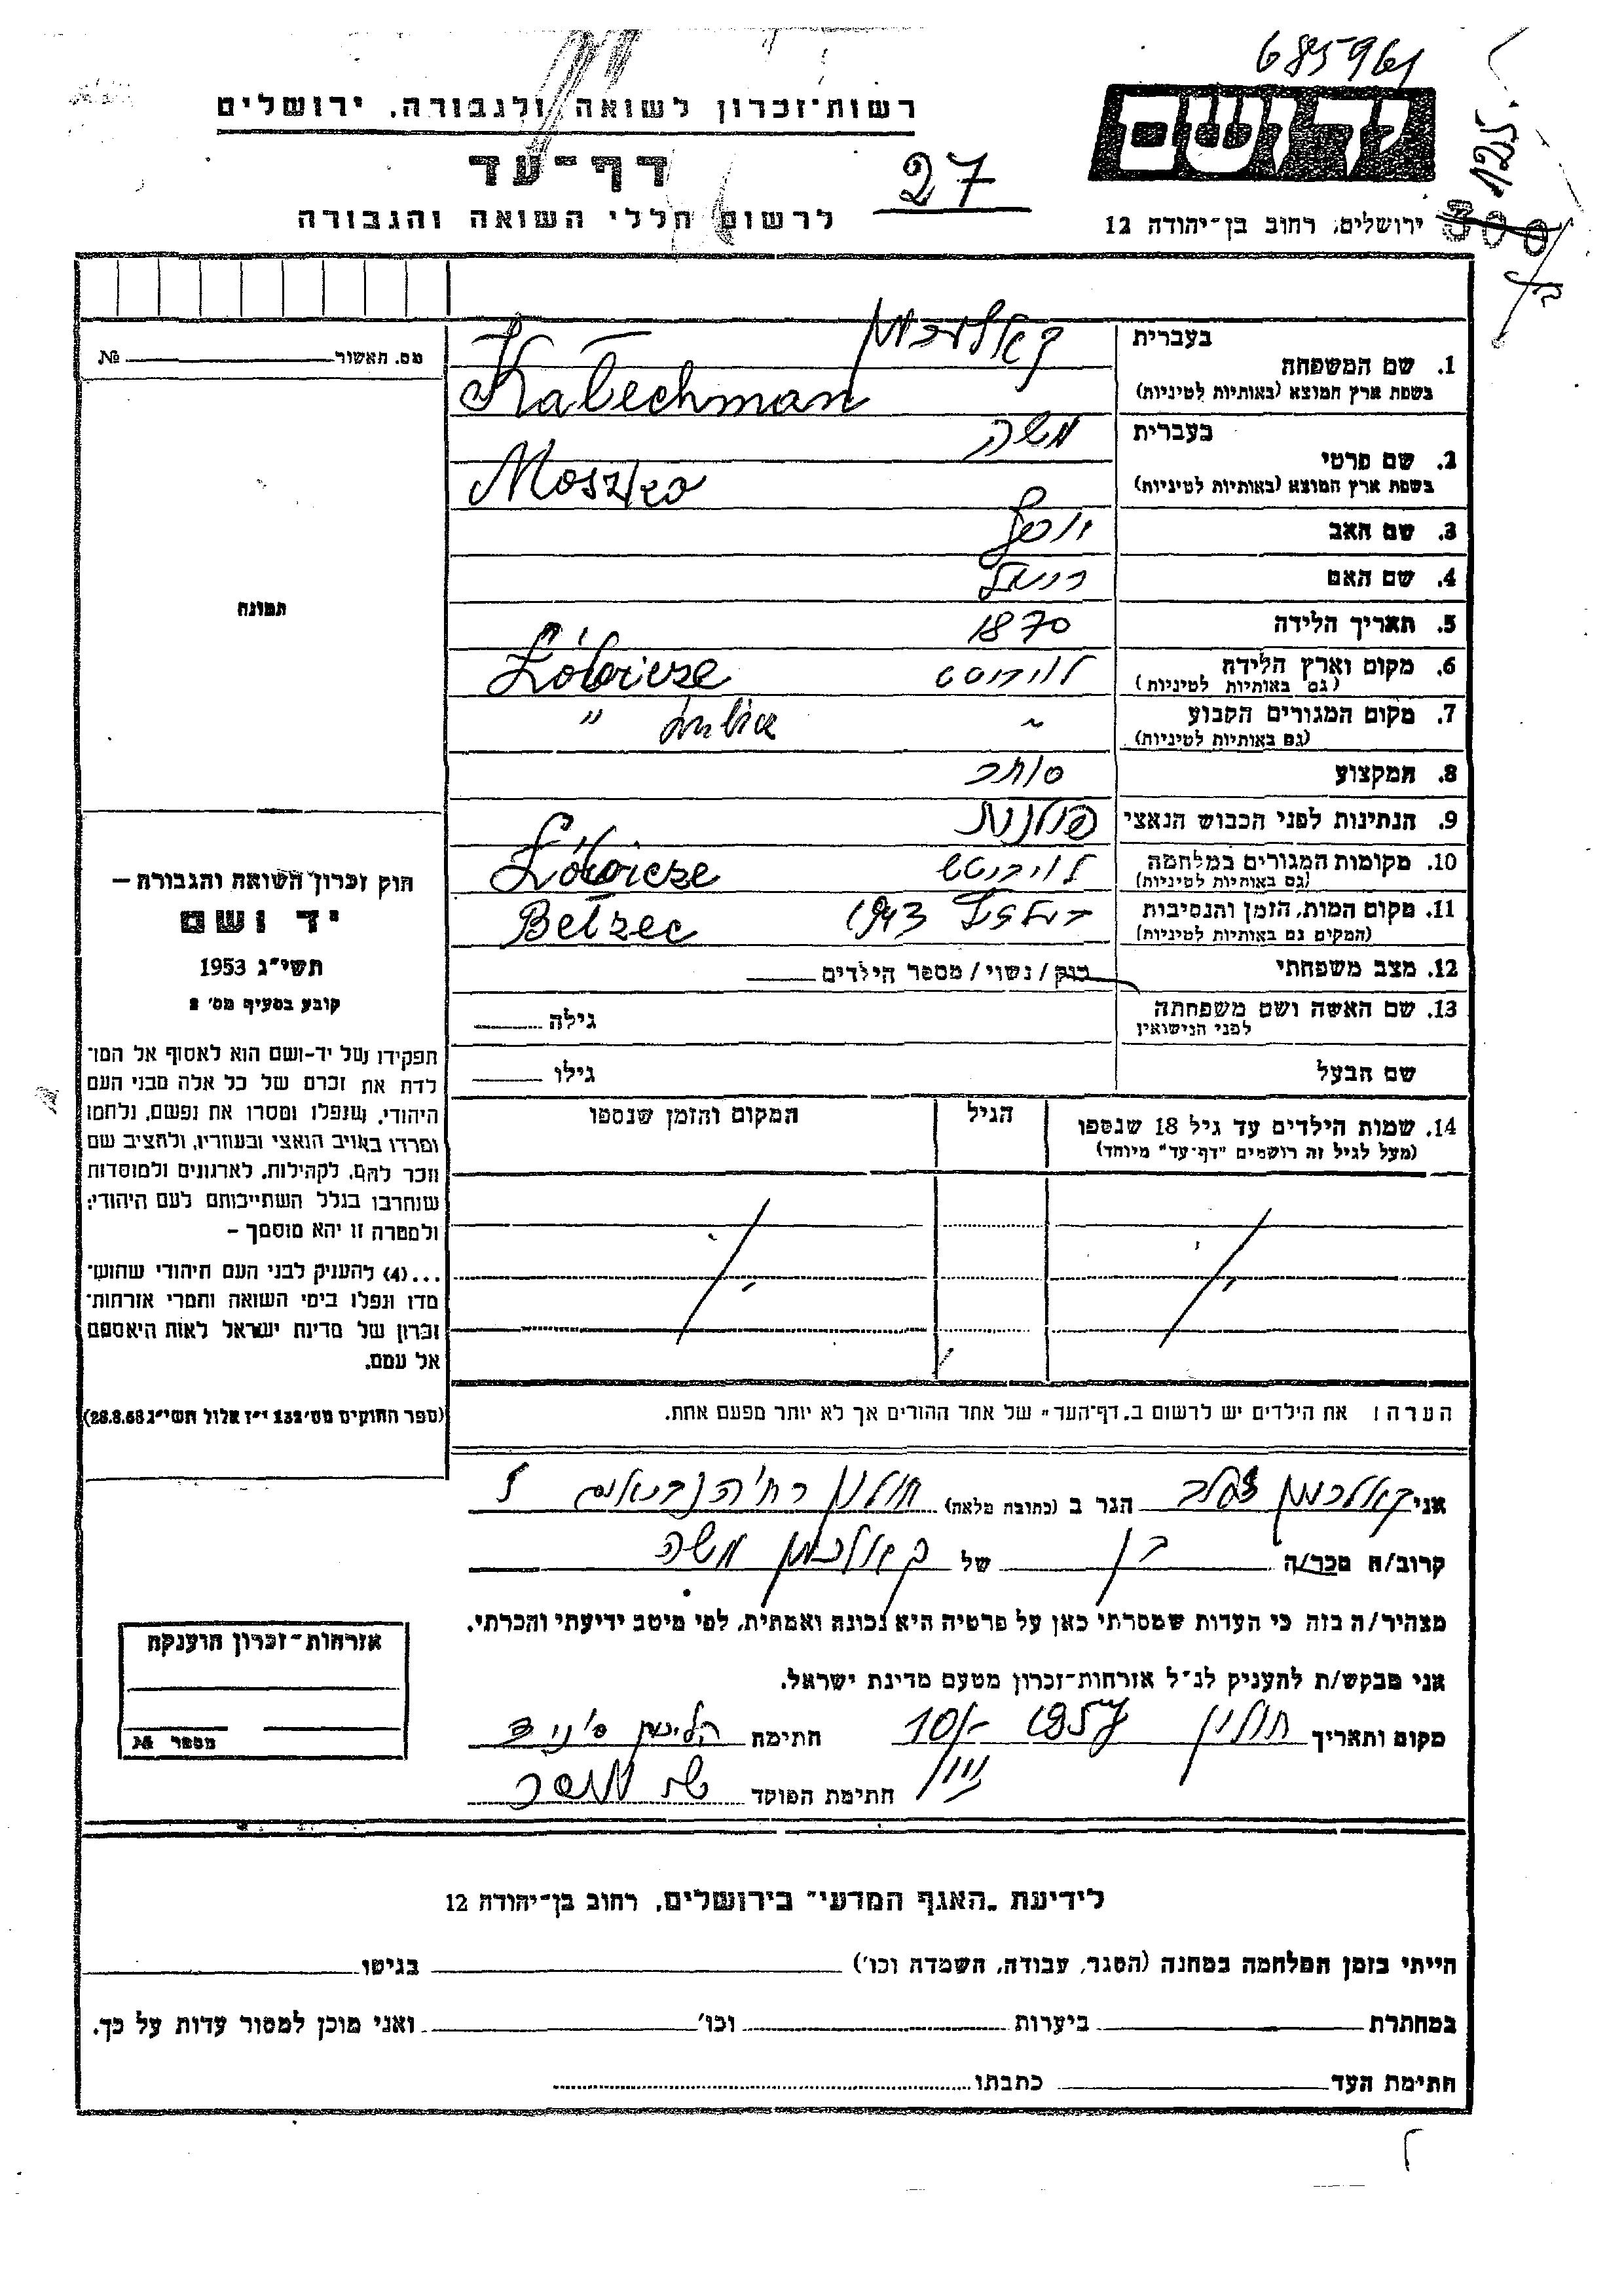 685961
רשות־זכרון לשואה ולגבורה, ירושלים
ידושם
125
דף־עד
27
לרשום חללי השואה והגבורה
ירושלים, רחוב בן־יהודה 12
מס. האשור № 
1. שם המשפחה
בעברית
קאלכמן
בשפת ארץ המוצא (באותיות לטיניות)
Kalechman
2. שם פרטי
בעברית
משה
בשפת ארץ המוצא (באותיות לטיניות)
Moszko
3. שם האב יוסף
4. שם האם
תמונה
5. תאריך הלידה 1870
6. מקום וארץ הלידה
(גם באותיות לטיניות)
7. מקום המגורים הקבוע "
(גם באותיות לטיניות)
8. המקצוע סוחר
9. הנתינות לפני הכבוש הנאצי פולנית
10. מקומות המגורים במלחמה
(גם באותיות לטיניות)
11. מקום המות, הזמן והנסיבות 1943 Bełzec
(המקום גם באותיות לטיניות)
12. מצב משפחתי רוק / נשוי / מספר הילדים
13. שם האשה ושם משפחתה
לפני הנישואין
גילה
שם הבעל
גילו
14. שמות הילדים עד גיל 18 שנספו
(מעל לגיל זה רושמים "דף־עד" מיוחד)
הגיל
המקום והזמן שנספו
הערה: את הילדים יש לרשום ב„דף־העד" של אחד ההורים אך לא יותר מפעם אחת.
חוק זכרון השואה והגבורה –
יד ושם
תשי"ג 1953
קובע בסעיף מס' 2
תפקידו של יד-ושם הוא לאסוף אל המו־
לדת את זכרם של כל אלה מבני העם
היהודי, שנפלו ומסרו את נפשם, נלחמו
ומרדו באויב הנאצי ובעוזריו, ולהציב שם
וזכר להם, לקהילות, לארגונים ולמוסדות
שנחרבו בגלל השתייכותם לעם היהודי;
ולמטרה זו יהא מוסמך –
...(4) להעניק לבני העם היהודי שהוש־
מדו ונפלו בימי השואה והמרי אזרחות־
זכרון של מדינת ישראל לאות היאספם
אל עמם.
(ספר החוקים מס' 132 י"ז אלול תשי"ג 28.8.53)
אני קאלכמן הגר ב (כתובת מלאה) חולון
קרוב/ה מכר/ה בן של קאלכמן משה
מצהיר/ה בזה כי העדות שמסרתי כאן על פרטיה היא נכונה ואמתית, לפי מיטב ידיעתי והכרתי.
אני מבקש/ת להעניק לנ"ל אזרחות־זכרון מטעם מדינת ישראל.
מקום ותאריך חולון 1957 חתימה
חתימת הפוקד
אזרחות־זכרון הוענקה
מספר №
לידיעת „האגף המדעי" בירושלים, רחוב בן־יהודה 12
הייתי בזמן המלחמה במחנה (הסגר, עבודה, השמדה וכו') בגיטו
במחתרת ביערות וכו' ואני מוכן למסור עדות על כך.
חתימת העד כתבתו